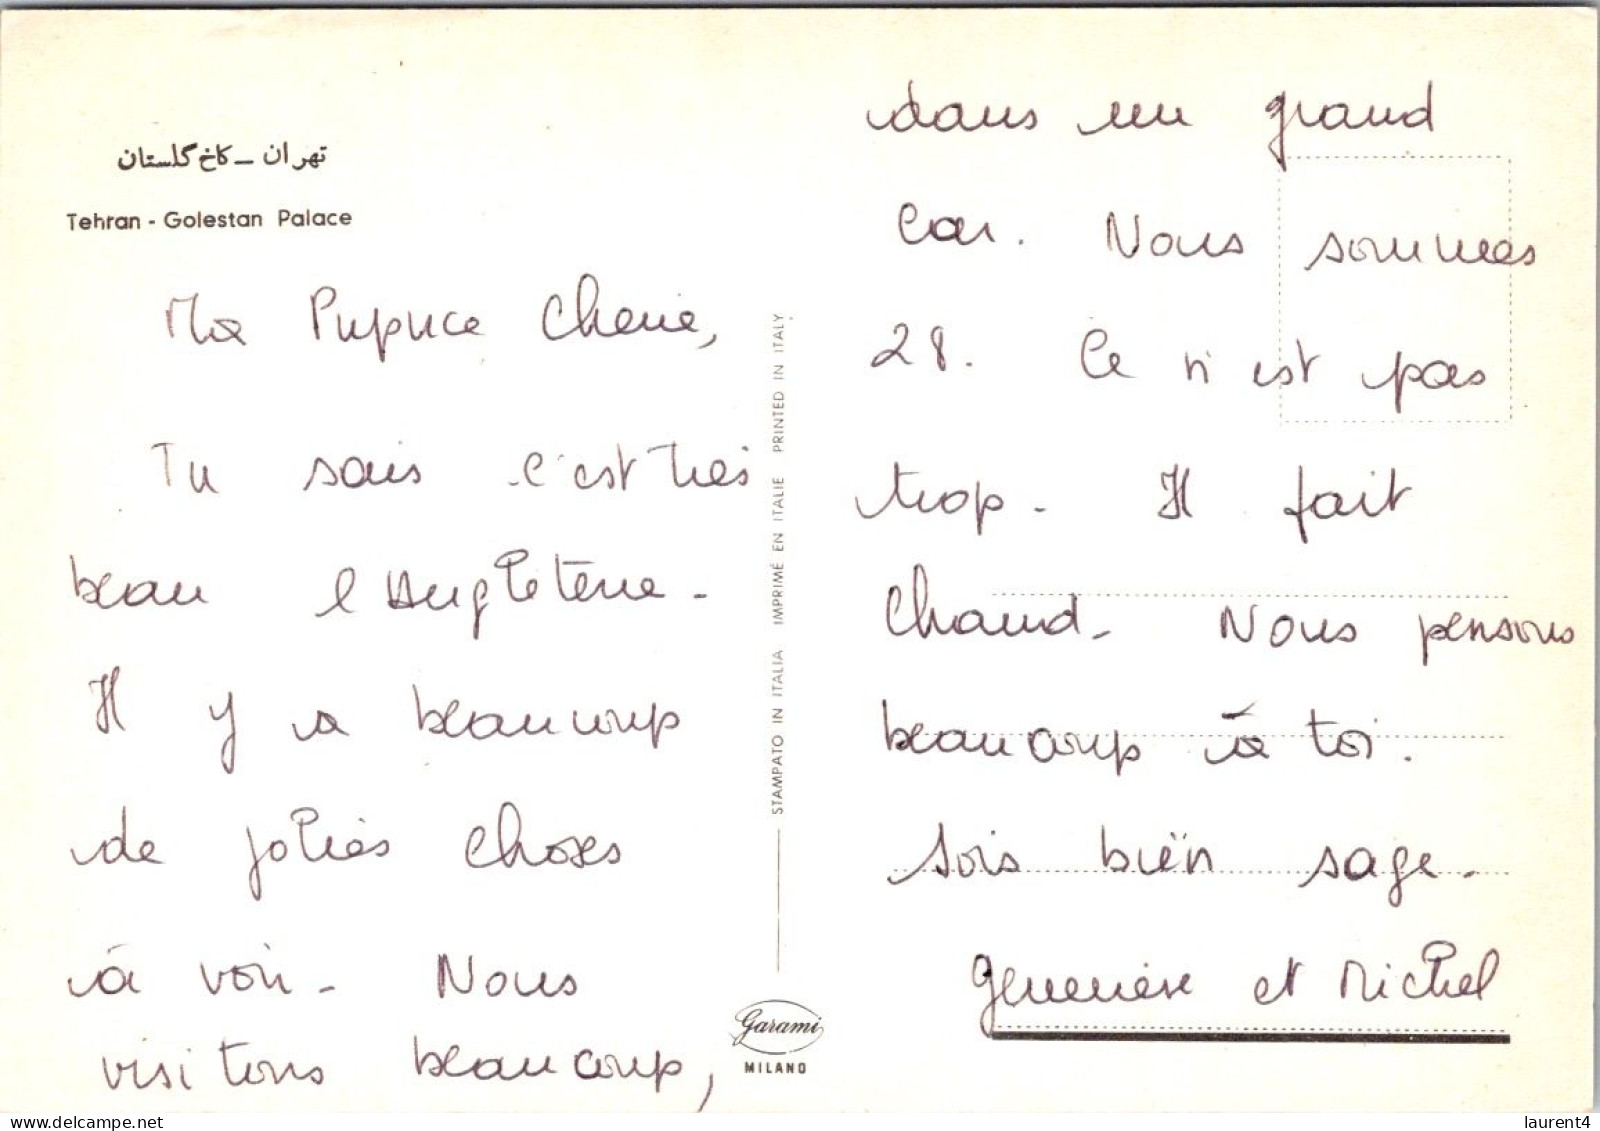 تهران ـ کاخ گلستان
Tehran - Golestan Palace
Ma Pupuce Cherie,
Tu sais c'est très
beau l'Angleterre -
Il y a beaucoup
de jolies choses
à voir - Nous
visitons beaucoup,
STAMPATO IN ITALIA IMPRIMÉ EN ITALIE PRINTED IN ITALY
Garami
MILANO
dans un grand
car. Nous sommes
28. Ce n'est pas
trop - Il fait
chaud - Nous pensons
beaucoup à toi.
Sois bien sage -
Geneviève et Michel
www.delcampe.net
laurent4